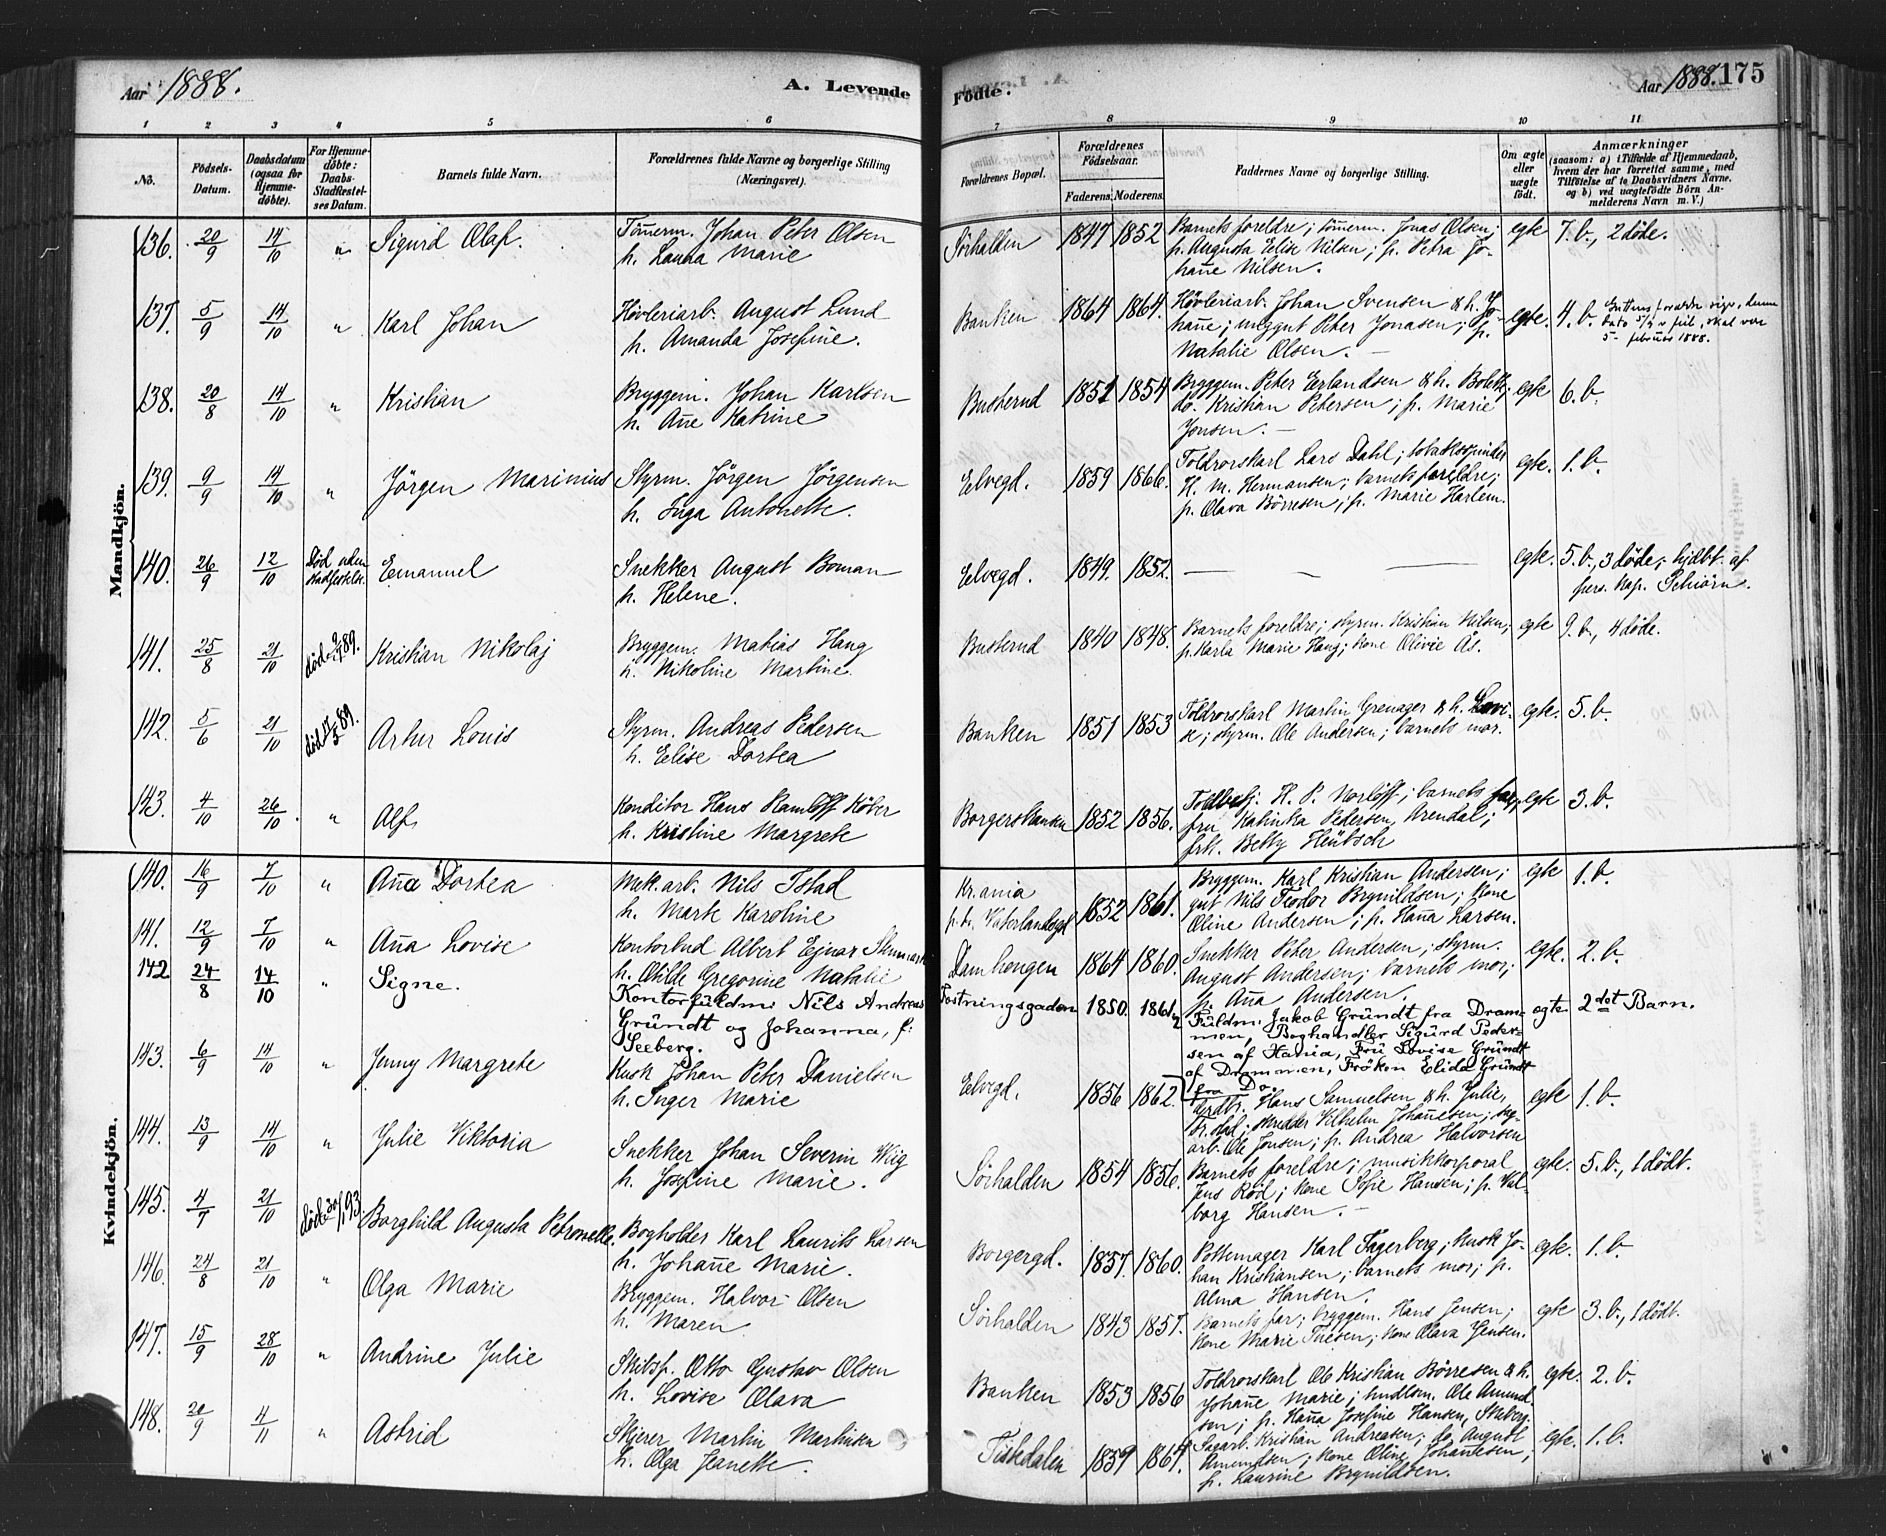 Aar 1888.
A. Levende
Fødte.
Aar 1888. 175
1 2 3 4 5 6 7 8 9 10 11
No.
Fødsels-
Datum.
Daabsdatum
(ogsaa for
Hjemme-
døbte).
For Hjemme-
døbte:
Daabs-
Stadfæstel-
ses Datum.
Barnets fulde Navn.
Forældrenes fulde Navne og borgerlige Stilling
(Næringsvei).
Forældrenes Bopæl.
Forældrenes
Fødselsaar.
Faderens. Moderens.
Faddernes Navne og borgerlige Stilling.
Om ægte
eller
uægte
født.
Anmærkninger
(saasom: a) i Tilfælde af Hjemmedaab,
hvem der har forrettet samme, med
Tilføielse af to Daabsvidners Navne.
og b) ved uægtefødte Børn An-
melderens Navn m. V.)
Mandkjøn.
136. 20/9 14/10 " Sigurd Olaf. Tømerm. Johan Peter Olsen
h. Laura Marie
Sørhalden 1847 1852 Barnets foreldre; tømerm. Jonas Olsen;
p. Augusta Elise Nilsen; p. Petra Jo-
hañe Nilsen.
egte 7. b., 2 døde.
137. 5/9 14/10 " Karl Johan Høvleriarb. August Lund
h. Amanda Josefine.
Banken 1864 1864. Høvleriarb. Johan Svensen & h. Jo-
hañe; unggut Peter Jonasen; p.
Natalie Olsen. —
egte. 4. b.
5 – februar 1888.
138. 20/8 14/10 " Kristian Bryggem. Johan Karlsen
h. Añe Katrine
Busterud 1851 1854 Bryggem. Peter Erlandsen & h. Bolette;
do. Kristian Petersen; p. Marie
Jonsen. —
egte 6. b.
139. 9/9 14/10 " Jörgen Marinius Styrm. Jörgen Jörgensen
h. Inga Antonette.
Elvegd. 1859 1866. Toldrorskarl Lars Dahl; tobakspinder
H. M. Hermansen; barnets foreldre;
p. Olava Börresen; p. Marie Harlem.
egte. 1. b.
140. 26/9 12/10 Død uden
stadfestelse. Emanuel Snekker August Boman
h. Helene.
Elvegd. 1849. 1852. — — —
egte. 5. b., 3 døde; hjdbt. af
pers. kap. Schiørn.
141. 25/8 21/10 Kristian Nikolaj Bryggem. Matias Haug
h. Nikoline Martine.
Busterud 1840 1848. Barnets foreldre; styrm. Kristian Nilsen;
p. Karla Marie Haug; kone Olivie Ås.
egte 9. b., 4 døde.
142. 5/6 21/10 Artur Louis Styrm. Andreas Pedersen
h. Elise Dortea
Banken 1851 1853 Toldrorskarl Martin Grenager & h. Lovi-
se; styrm. Ole Andersen; barnets mor.
egte. 5. b.
143. 4/10 26/10. " Alf Konditor Hans Ramløff Köber
h. Kristine Margrete
Borgerskansen 1852 1856. Toldbetj. H. P. Norlöff; barnets far;
fru Katinka Pedersen, Arendal;
frk. Betty Heütsch
egte 3. b.
Kvindekjøn.
140. 16/9 7/10 " Aña Dortea Mek. arb. Nils Istad
h. Marte Karoline
Kr.ania
p.t. Vaterlandsgd 1852 1861. Bryggem. Karl Kristian Andersen;
gut Nils Teodor Brynildsen; kone
Oline Andersen; p. Haña Larsen.
egte 1. b.
141. 12/9 7/10 " Aña Lovise Kontorbud Albert Ejnar
h. Otilde Gregorine Natalie
Damhengen 1864 1860. Snekker Peter Andersen; styrm.
August Andersen; barnets mor;
p. Aña Andersen.
egte. 2. b.
142 24/8 14/10 " Signe. Kontorfuldm. Nils Andreas
Gründt og Johanna, f.
Seeberg.
Tostningsgaden 1850. 1861. Fuldm. Jakob Gründt fra Dram-
men, Boghandler Sigurd Peder-
sen af Xania, Fru Lovise Gründt
af Drammen, Frøken Elida Gründt
fra Do.
egte 2det Barn.
143. 6/9 14/10 " Jenny Margrete Kusk Johan Peter Danielsen
h. Inger Marie
Elvegd. 1856 1862. Hans Samuelsen & h. Julie,
skredder Vilhelm Johañesen; sag-
arb. Ole Jonsen; p. Andrea Halvorsen
egte 1. b.
144. 13/9 14/10 " Julie Viktoria Snekker Johan Severin Wiig
h. Josefine Marie.
Sørhalden 1854 1856. Barnets foreldre; musikkorporal
Jens Röd; kone Sofie Hansen; p. Val-
borg Hansen. —
egte. 5. b., 1 dødt.
145. 4/7 21/10 Borghild Augusta Petronelle. Bogholder Karl Laurits Larsen
h. Johañe Marie.
Borgergd. 1857. 1860. Pottemager Karl Fagerberg; kusk Jo-
han Kristiansen; barnets mor; p.
Alma Hansen.
egte. 1. b.
146. 24/8 21/10 " Olga Marie Bryggem. Halvor Olsen
h. Maren
Sørhalden 1843 1857. Barnets far; bryggem. Hans Jensen;
kone Marie Thesen; kone Olava Jensen.
egte 3. b., 1 dødt.
147. 15/9 28/10 " Andrine Julie Skibsf. Otto Gustav Olsen
h. Lovise Olava
Banken 1853 1856 Toldrorskarl Ole Kristian Börresen & h.
Johañe Marie; Ole Amund-
sen; p. Haña Josefine Hansen, Skeberg.
egte. 2. b.
148. 20/9 4/11 " Astrid Skjerer Martin Martinsen
h. Olga Jeanette.
Tistedalen 1859 1864. Sagarb. Kristian Andreasen; do. August
Amundsen; kone Oline Johañesen;
p. Laurine Brynildsen.
egte. 1. b.